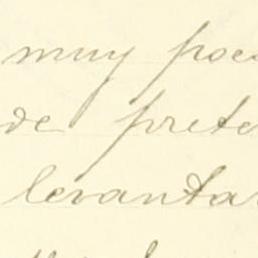 muy poe
de prete
levantar